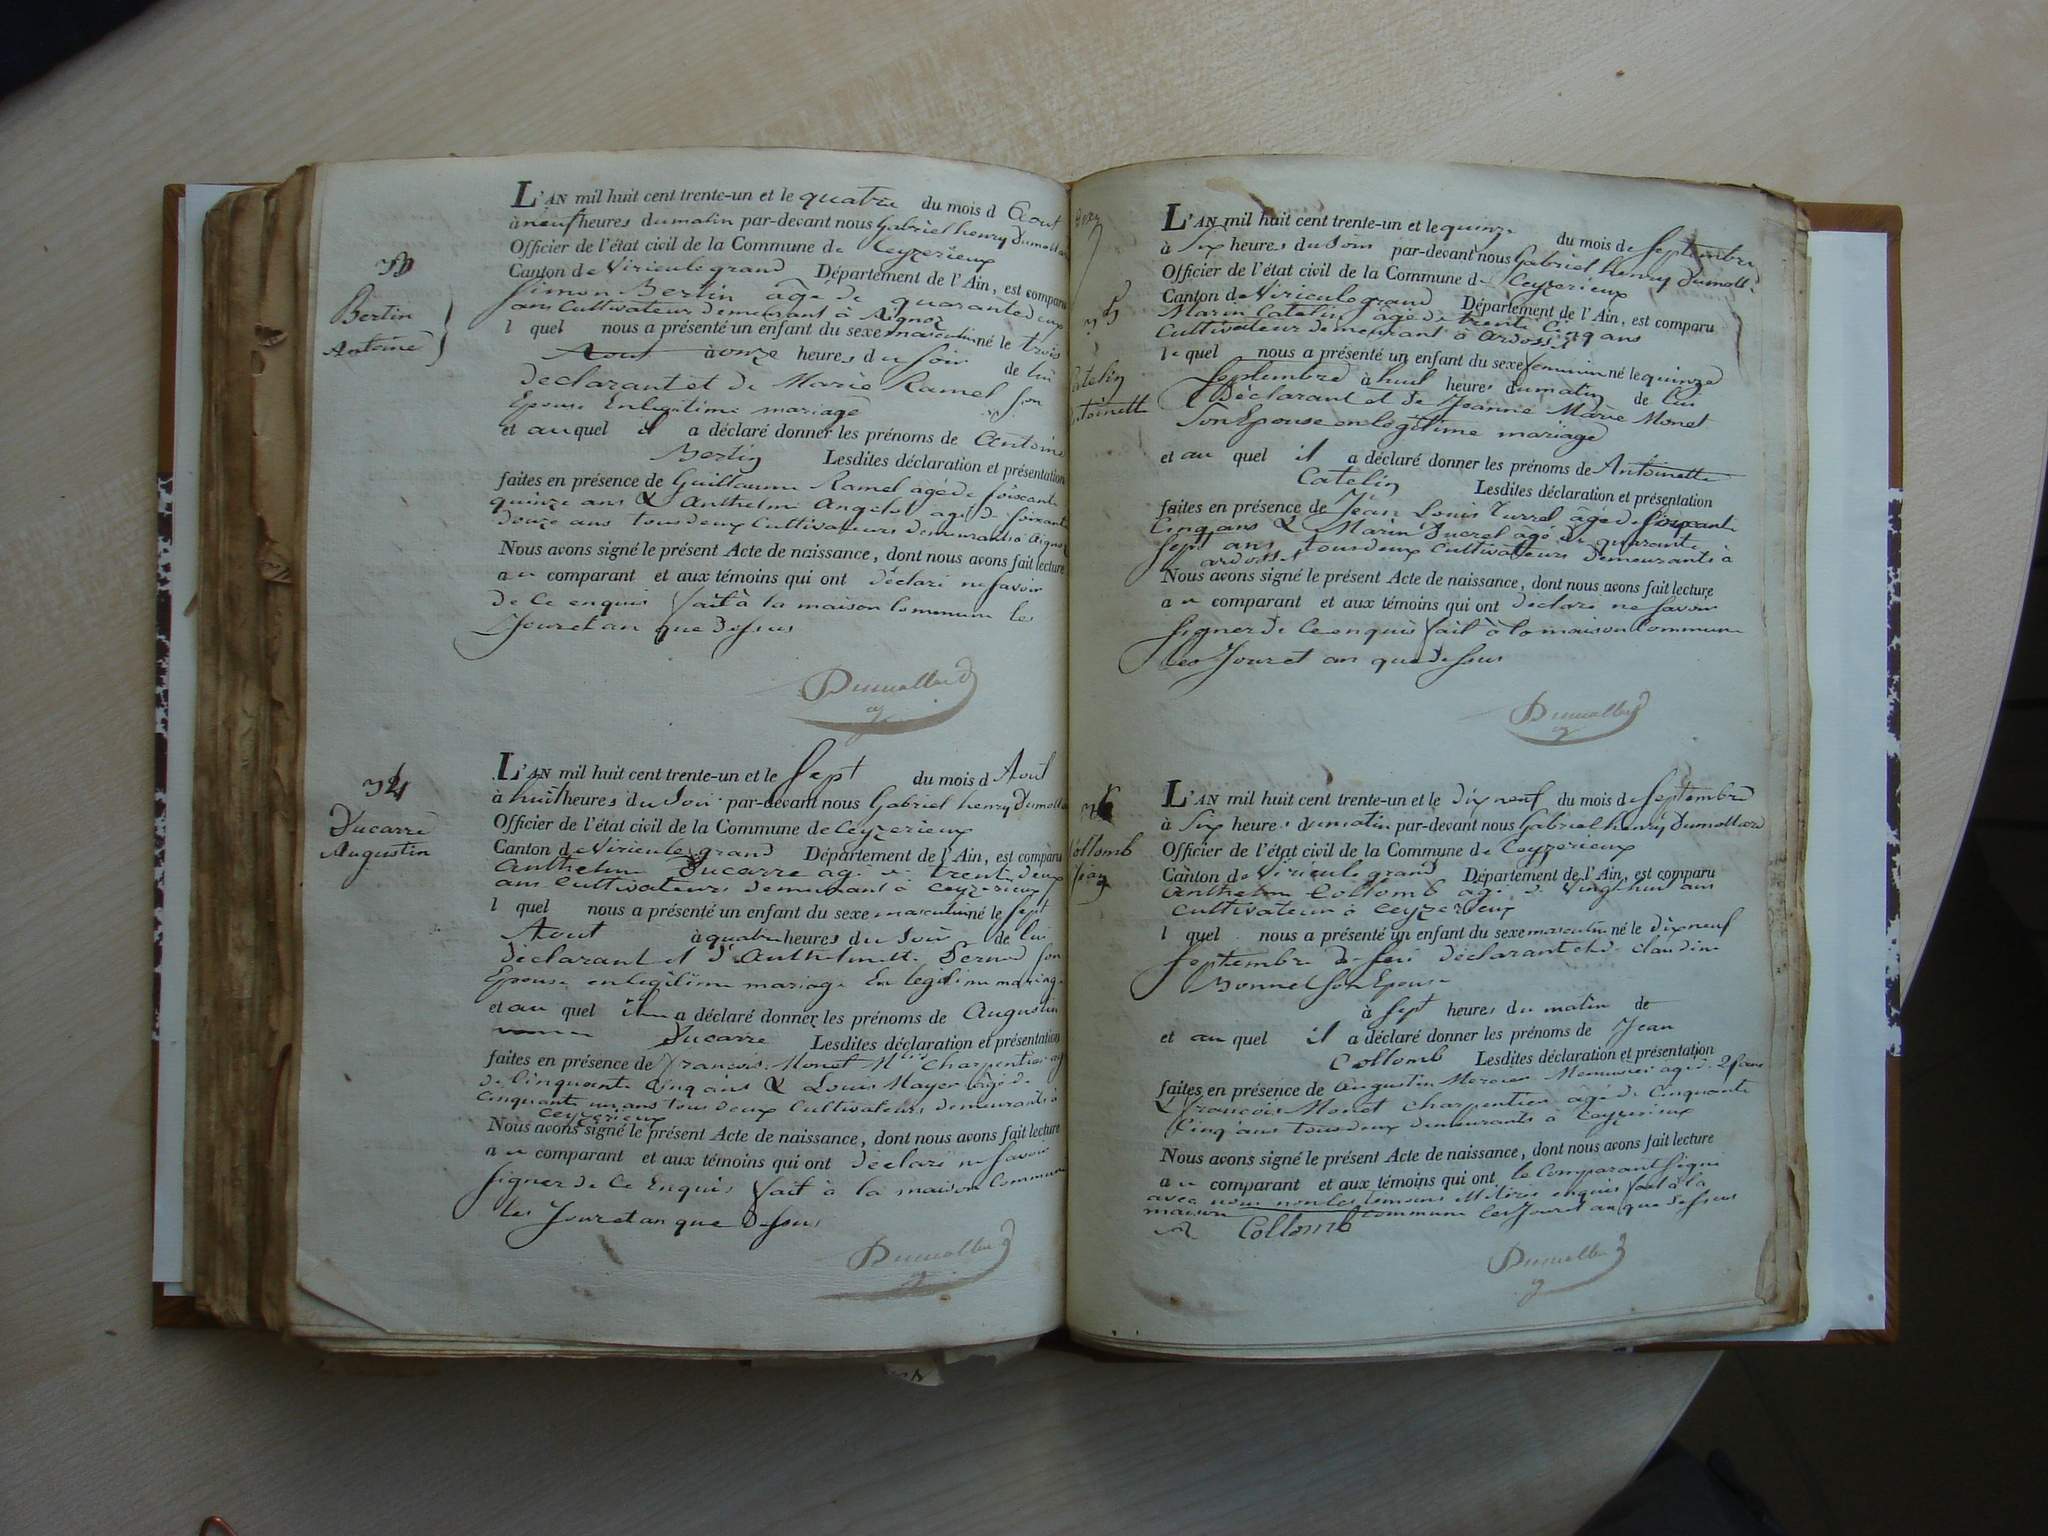 L'AN mil huit cent trente-un et le quatre du mois d Aout
à neuf heures du matin par-devant nous Gabriel henry Dumollard
Officier de l'état civil de la Commune de Ceyzerieux
Canton de Virieule grand Département de l'Ain, est comparu
Simon Bertin âgé de quarante deux
ans Cultivateur demeurant à Aignoz
l quel nous a présenté un enfant du sexe masculin né le trois
Aout à onze heures du soir de lui
declarant et de Marie Ramel son
Epouse En legitime mariage
et au quel il a déclaré donner les prénoms de Antoine
Bertin Lesdites déclaration et présentation
faites en présence de Guillaume Ramel agé de soixante
quinze ans & Anthelme Angelot agé de soixante
douze ans tous deux Cultivateurs demeurants à Aignoz
Nous avons signé le présent Acte de naissance, dont nous avons fait lecture
au comparant et aux témoins qui ont déclaré ne savoir
de ce enquis fait à la maison commune les
Jour et an que dessus
Dumollard
33
Bertin
Antoine
L'AN mil huit cent trente-un et le Sept du mois d Aout
à huit heures du Soir par-devant nous Gabriel henry Dumollard
Officier de l'état civil de la Commune de Ceyzerieux
Canton de Virieule grand Département de l'Ain, est comparu
Anthelme Ducarre agé de trente deux
ans cultivateurs demeurant à Ceyzerieux
l quel nous a présenté un enfant du sexe masculin né le Sept
Aout à quatre heures du Soir de lui
déclarant et d'Anthelmette son
Epouse en legitime mariage En legitime mariage
et au quel il a déclaré donner les prénoms de Augustin
Ducarre Lesdites déclaration et présentation
faites en présence de François Monet Charpentier agé
de Cinquante Cinq ans & Louis Mayer âgé de
Cinquante un ans tous deux Cultivateurs demeurants à
Ceyzerieux
Nous avons signé le présent Acte de naissance, dont nous avons fait lecture
au comparant et aux témoins qui ont déclaré ne savoir
signer de ce Enquis fait à la maison Commune
les Jour et an que dessus
Dumollard
34
Ducarre
Augustin
L'AN mil huit cent trente-un et le quinze du mois de Septembre
à Six heures du Soir par-devant nous Gabriel henry Dumoll
Officier de l'état civil de la Commune de Ceyzerieux
Canton de Virieule grand Département de l'Ain, est comparu
Marin Catelin âgé de trente Cinq ans
Cultivateur demeurant à ardosset
le quel nous a présenté un enfant du sexe feminin né le quinze
Septembre à huit heures du matin de lui
Déclarant et de Jeanne Marie Monet
Son Epouse en legitime mariage
et au quel il a déclaré donner les prénoms de Antoinette
Catelin Lesdites déclaration et présentation
faites en présence de Jean Louis Turrel âgé de soixante
Cinq ans & Marin Ducret âgé de quarante
Sept ans tous deux Cultivateurs demeurants à
ardosset
Nous avons signé le présent Acte de naissance, dont nous avons fait lecture
au comparant et aux témoins qui ont déclaré ne savoir
signer de ce enquis fait à la maison Commune
les Jour et an que dessus
Dumollard
35
Catelin
Antoinette
L'AN mil huit cent trente-un et le dix neuf du mois de Septembre
à Six heures du matin par-devant nous Gabriel henry Dumollard
Officier de l'état civil de la Commune de Ceyzerieux
Canton de Virieule grand Département de l'Ain, est comparu
Anthelme Collomb agé de Vingt huit ans
Cultivateur à Ceyzerieux
l quel nous a présenté un enfant du sexe masculin né le dix neuf
Septembre de lui déclarant et de Claudine
Bonnet son Epouse
à Sept heures du matin de
et au quel il a déclaré donner les prénoms de Jean
Collomb Lesdites déclaration et présentation
faites en présence de Augustin Mercier Menuisier agé de ans
& François Monet charpentier agé de Cinquante
Cinq ans tous deux demeurants à Ceyzerieux
Nous avons signé le présent Acte de naissance, dont nous avons fait lecture
au comparant et aux témoins qui ont le comparant signé
avec nous non les temoins enquis fait à la
maison commune les Jour et an que dessus
Collomb
Dumollard
36
Collomb
Jean